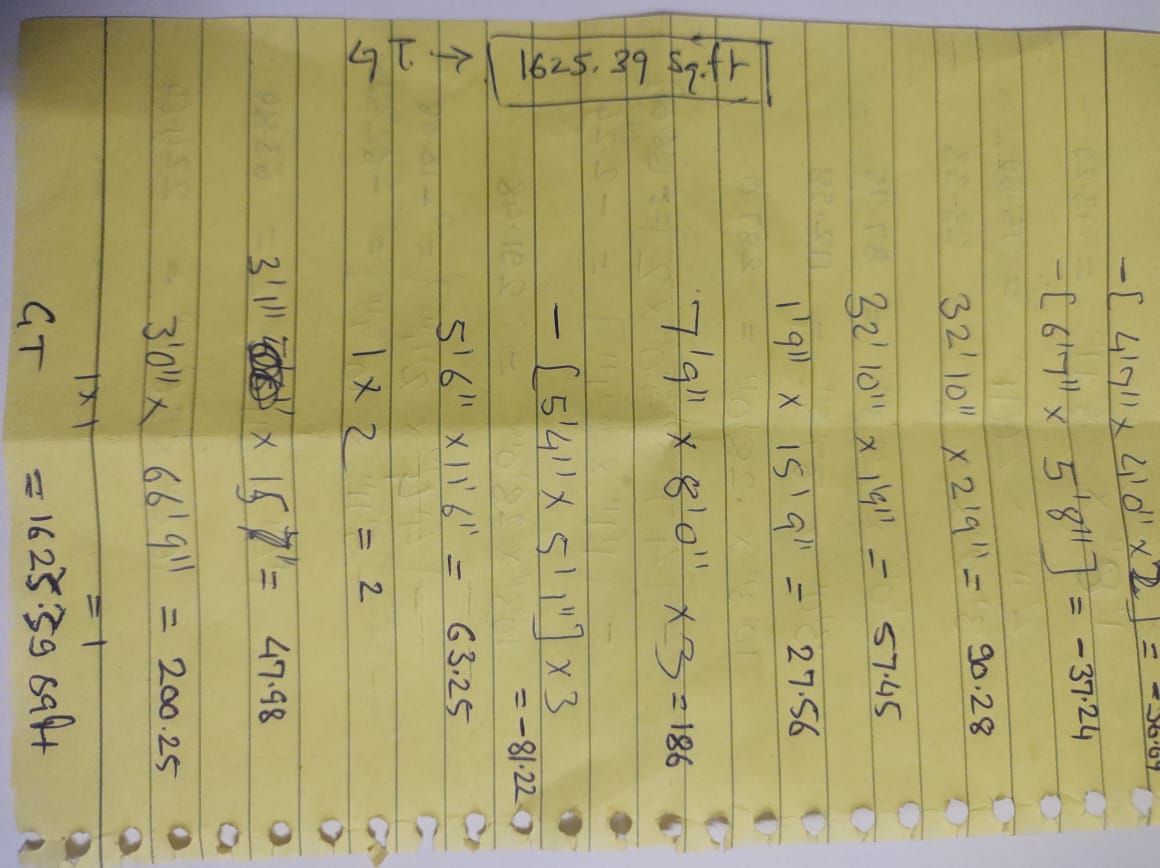 -[ 4'7" x 4'0" x2 ] = -36.64
-[ 6'7" x 5'8" ] = -37.24
32' 10" x 2'9" = 90.28
32' 10" x 1'9" = 57.45
1'9" x 15'9" = 27.56
7'9" x 8'0" x 3 = 186
- [ 5'4" x 5'1" ] x 3
= -81.22
5'6" x 11'6" = 63.25
1 x 2 = 2
3'1" x 15 7" = 47.98
3'0" x 66'9" = 200.25
1x1 = 1
GT = 1625.39 sqft
GT → 1625.39 Sq.ft